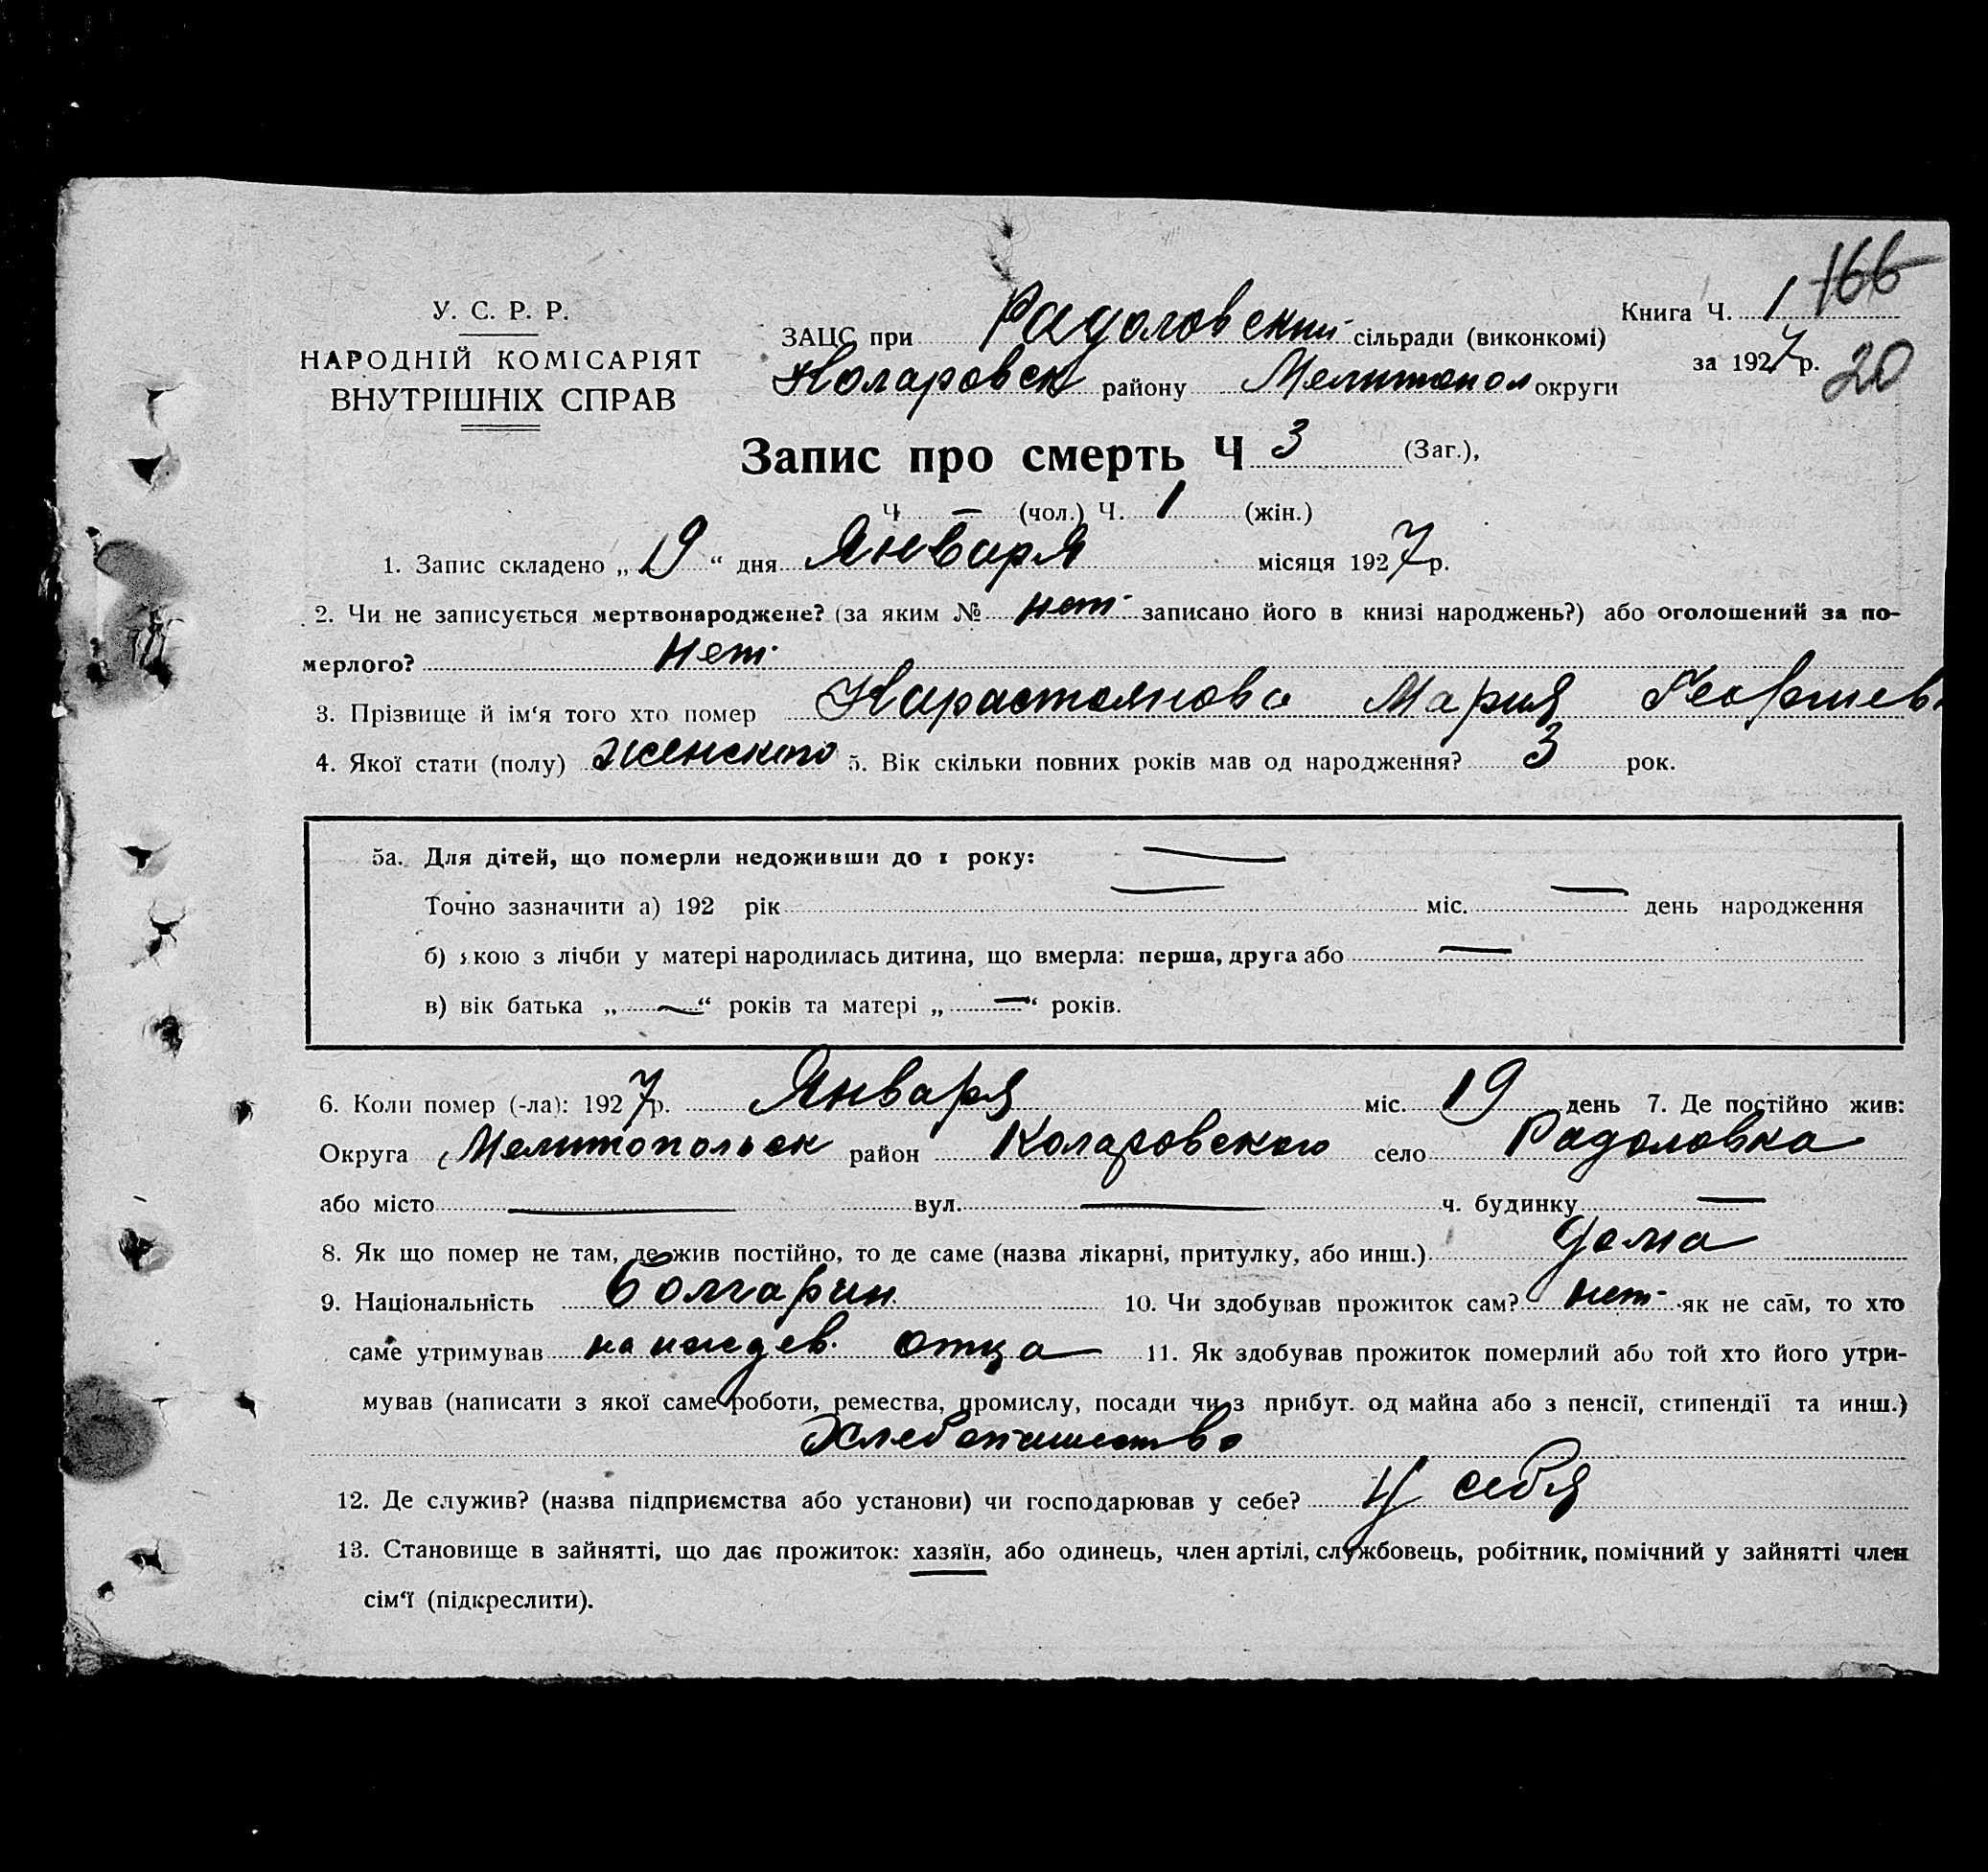 Книга Ч. 1 166
У. С. Р. Р.
ЗАЦС при Радоловский сільради (виконкомі)
НАРОДНІЙ КОМІСАРІЯТ
за 1927 р. 20
Коларовск району Мелитопол округи
ВНУТРІШНІХ СПРАВ
Запис про смерть Ч 3 (Заг.),
Ч — (чол.) Ч. 1 (жін.)
1. Запис складено „ 19 “ дня Января місяця 1927 р.
2. Чи не записується мертвонароджене? (за яким № нет записано його в книзі народжень?) або оголошений за по-
мерлого? нет
3. Прізвище й ім‘я того хто помер Карастоянова Мария Георгиев
4. Якої стати (полу) женского 5. Вік скільки повних років мав од народження? 3 рок.
5а. Для дітей, що померли недоживши до 1 року: —
Точно зазначити а) 192 рік — міс. — день народження
б) якою з лічби у матері народилась дитина, що вмерла: перша, друга або —
в) вік батька „ — “ років та матері „ — “ років.
6. Коли помер (-ла): 1927 р. Января міс. 19 день 7. Де постійно жив:
Округа Мелитопольск район Коларовского село Радоловка
або місто — вул. — ч. будинку —
8. Як що помер не там, де жив постійно, то де саме (назва лікарні, притулку, або инш.) дома
9. Національність болгарин 10. Чи здобував прожиток сам? нет як не сам, то хто
саме утримував на иждев. отца 11. Як здобував прожиток померлий або той хто його утри-
мував (написати з якої саме роботи, ремества, промислу, посади чи з прибут. од майна або з пенсії, стипендії та инш.)
Хлебопашество
12. Де служив? (назва підприємства або установи) чи господарював у себе? У себя
13. Становище в зайнятті, що дає прожиток: хазяїн, або одинець, член артілі, службовець, робітник, помічний у зайнятті член
сім‘ї (підкреслити).